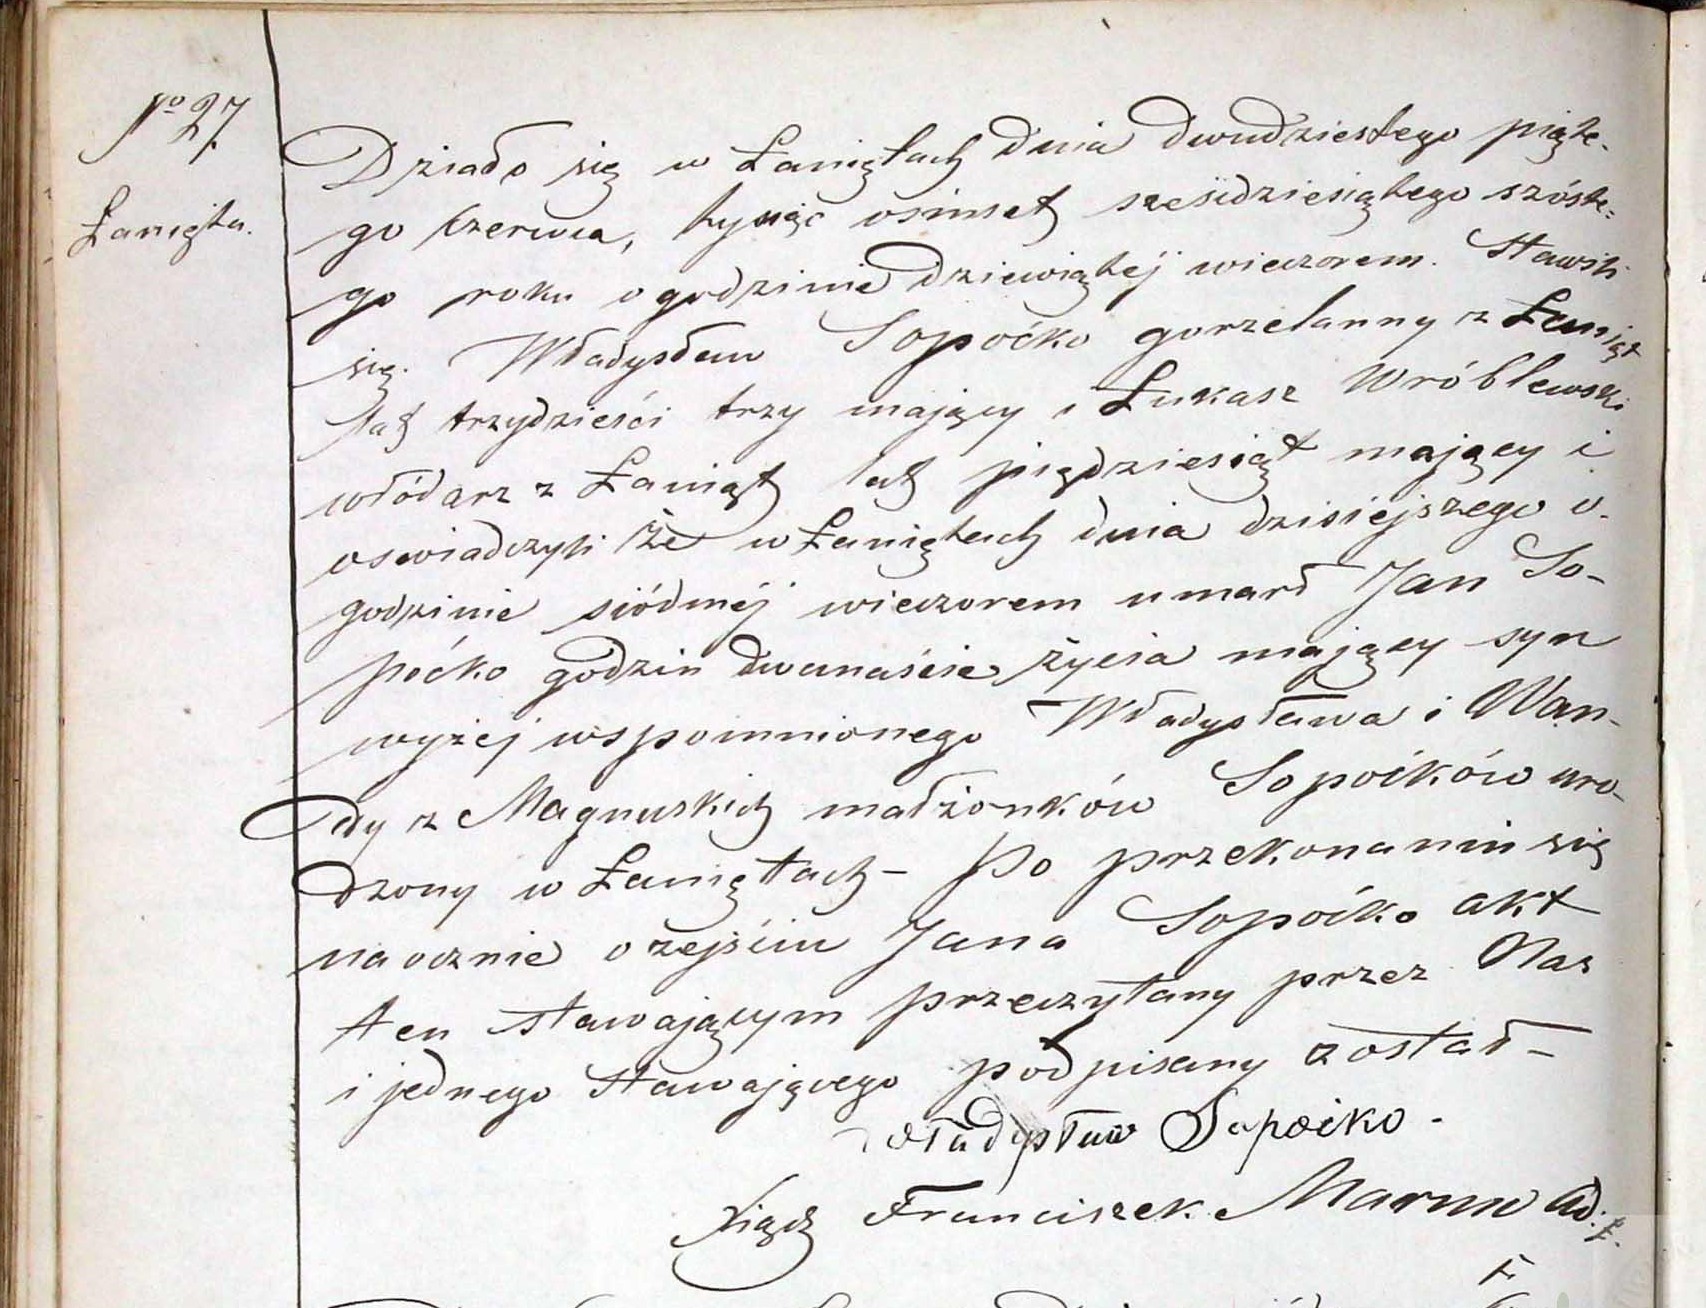 No 27.
Łanięta.
Działo się w Łaniętach dnia dwudziestego piąte-
go Czerwca, tysiąc osimset sześćdziesiątego szóste=
go roku o godzinie dziewiątej wieczorem. Stawili
się. Władysław Sopoćko gorzelanny z Łaniąt
lat trzydzieści trzy mający i Łukasz Wróblewski
włódarz z Łaniąt lat piędziesiąt mający i
oswiadczyli że w Łaniętach dnia dzisiejszego o-
godzinie siódméj wieczorem umarł Jan So-
poćko godzin dwanaście życia mający syn
wyżej wspomnionego Władysława i Wan-
dy z Magnuskich małżonków Sopoćków uro-
dzony w Łaniętach – Po przekonaniu się
naocznie o zejściu Jana Sopoćko akt
ten stawającym przeczytany przez Nas
i jednego stawającego podpisany został –
Władysław Sopoćko -
Xiądz Franciszek